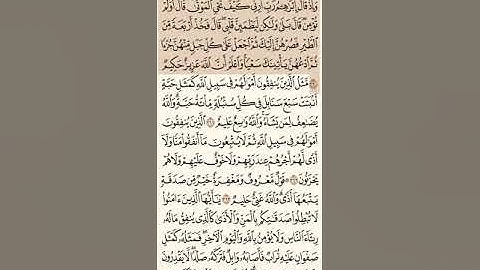 وَإِذْ قَالَ إِبْرَٰهِـۧمُ رَبِّ أَرِنِى كَيْفَ تُحْىِ ٱلْمَوْتَىٰ قَالَ أَوَلَمْ
تُؤْمِن قَالَ بَلَىٰ وَلَٰكِن لِّيَطْمَئِنَّ قَلْبِى قَالَ فَخُذْ أَرْبَعَةً مِّنَ
ٱلطَّيْرِ فَصُرْهُنَّ إِلَيْكَ ثُمَّ ٱجْعَلْ عَلَىٰ كُلِّ جَبَلٍ مِّنْهُنَّ جُزْءًا
ثُمَّ ٱدْعُهُنَّ يَأْتِينَكَ سَعْيًا وَٱعْلَمْ أَنَّ ٱللَّهَ عَزِيزٌ حَكِيمٌ
٢٦٠ مَّثَلُ ٱلَّذِينَ يُنفِقُونَ أَمْوَٰلَهُمْ فِى سَبِيلِ ٱللَّهِ كَمَثَلِ حَبَّةٍ
أَنۢبَتَتْ سَبْعَ سَنَابِلَ فِى كُلِّ سُنۢبُلَةٍ مِّا۟ئَةُ حَبَّةٍ وَٱللَّهُ
يُضَٰعِفُ لِمَن يَشَآءُ وَٱللَّهُ وَٰسِعٌ عَلِيمٌ ٢٦١ ٱلَّذِينَ يُنفِقُونَ
أَمْوَٰلَهُمْ فِى سَبِيلِ ٱللَّهِ ثُمَّ لَا يُتْبِعُونَ مَآ أَنفَقُوا۟ مَنًّا وَلَآ
أَذًى لَّهُمْ أَجْرُهُمْ عِندَ رَبِّهِمْ وَلَا خَوْفٌ عَلَيْهِمْ وَلَا هُمْ
يَحْزَنُونَ ٢٦٢ قَوْلٌ مَّعْرُوفٌ وَمَغْفِرَةٌ خَيْرٌ مِّن صَدَقَةٍ
يَتْبَعُهَآ أَذًى وَٱللَّهُ غَنِىٌّ حَلِيمٌ ٢٦٣ يَٰٓأَيُّهَا ٱلَّذِينَ ءَامَنُوا۟
لَا تُبْطِلُوا۟ صَدَقَٰتِكُم بِٱلْمَنِّ وَٱلْأَذَىٰ كَٱلَّذِى يُنفِقُ مَالَهُۥ
رِئَآءَ ٱلنَّاسِ وَلَا يُؤْمِنُ بِٱللَّهِ وَٱلْيَوْمِ ٱلْءَاخِرِ فَمَثَلُهُۥ كَمَثَلِ
صَفْوَانٍ عَلَيْهِ تُرَابٌ فَأَصَابَهُۥ وَابِلٌ فَتَرَكَهُۥ صَلْدًا لَّا يَقْدِرُونَ